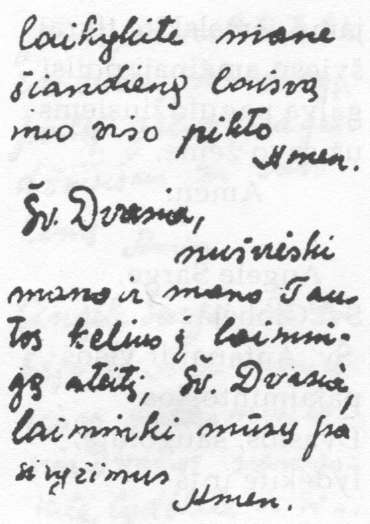 laikykite mane
šiandieną laisvą
nuo viso pikto
Amen.
Šv. Dvasia,
nušvieski
mano ir mano Tau-
tos kelius į laimin-
gą ateitį, Šv. Dvasia,
laimink mūsų pa
siryžimus
Amen.